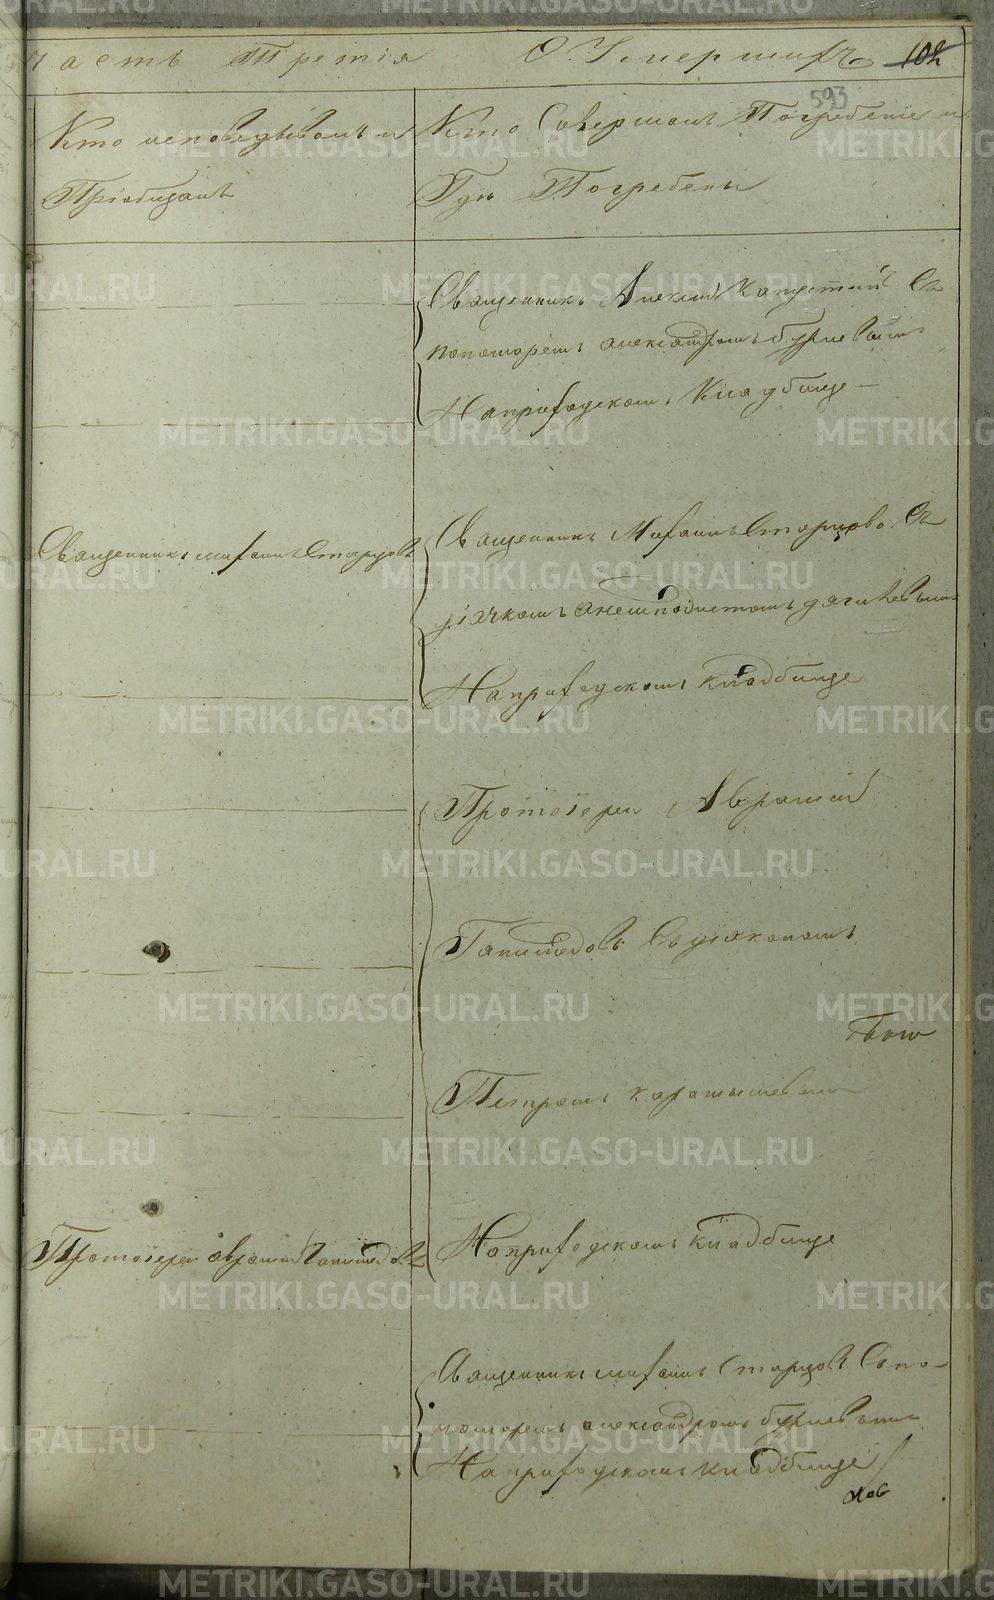 часть Третія О Умершихъ 102
593
Кто исповѣдывалъ и
Пріобщалъ
Кто Совершалъ Погребеніе и
Гдѣ Погребены
Священникъ Алексій Капустинъ Съ
пономаремъ александромъ
На приходскомъ Кладбище
Священникъ михаилъ Старцовъ
Священникъ Михаилъ Старцовъ Съ
дьячкомъ
На приходскомъ кладбище
Протоіереи Авраамій
Ганимедовъ Съ дьякономъ
Петромъ
На приходскомъ кладбище
Протоіереи авраамій Ганимедовъ
Священникъ михаилъ Старцовъ Съ по-
номаремъ александромъ
На приходскомъ кладбище
METRIKI.GASO-URAL.RU